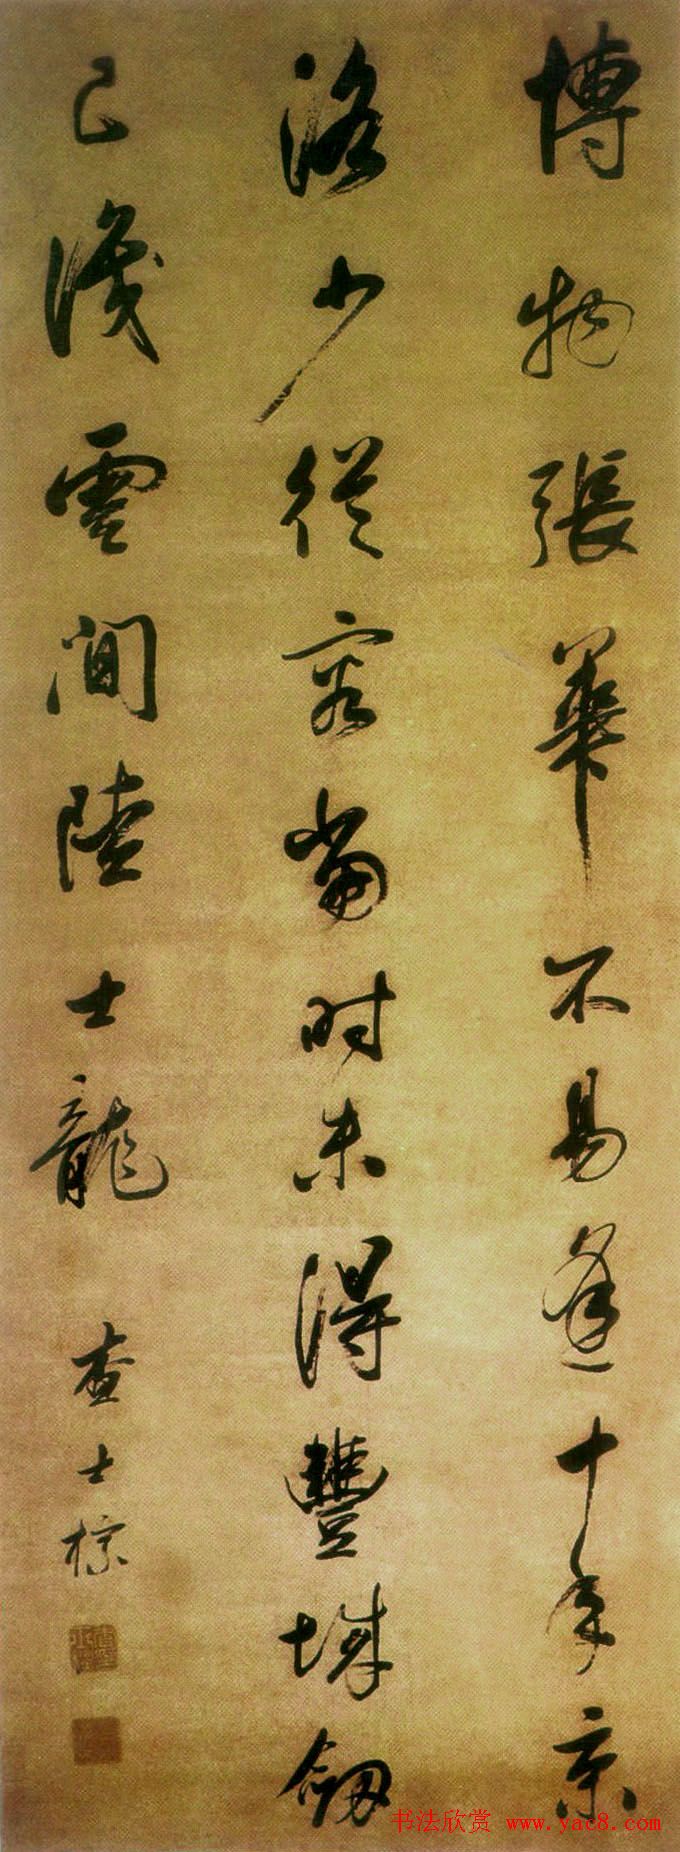 博物張華不易逢十年京
洛少從容當時未得豐城劔
已識雲間陸士龍
查士標
书法欣赏 www.yac8.com